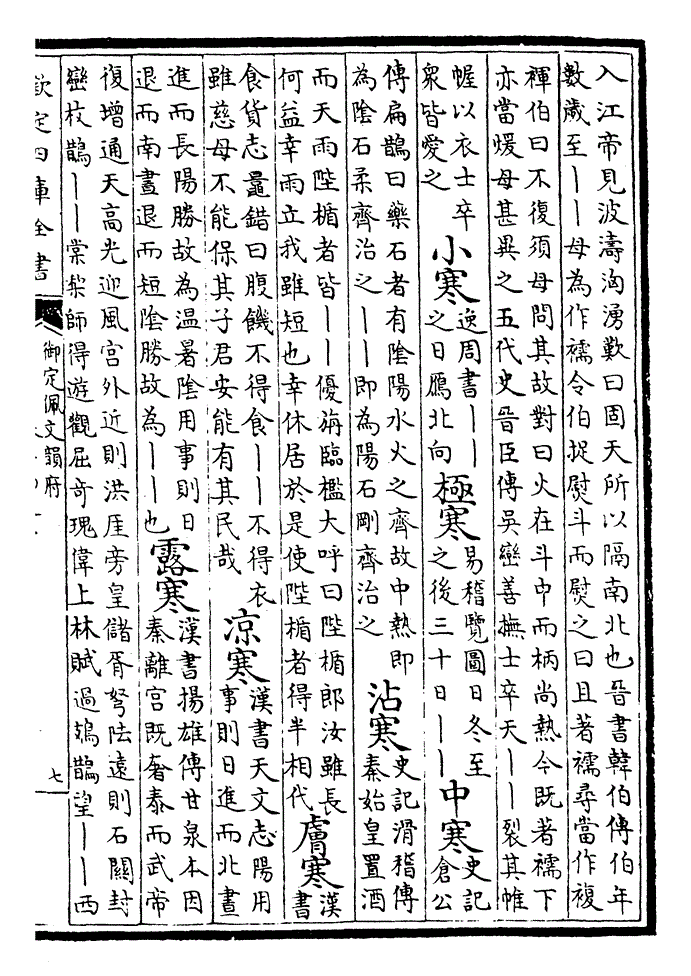 入江帝見波濤洶湧歎曰固天所以隔南北也晉書韓伯傳伯年
數歲至——母為作襦令伯捉熨斗而熨之曰且著襦尋當作複
褌伯曰不復須母問其故對曰火在斗中而柄尚熱今既著襦下
亦當煖母甚異之五代史晉臣傳吳巒善撫士卒天——裂其帷
幄以衣士卒
衆皆愛之
小寒
逸周書——
之日鴈北向
極寒
易稽覽圖曰冬至
之後三十日——
中寒
史記
倉公
傳扁鵲曰藥石者有陰陽水火之齊故中熱即
為陰石柔齊治之——即為陽石剛齊治之
沾寒
史記滑稽傳
秦始皇置酒
而天雨陛楯者皆——優旃臨檻大呼曰陛楯郎汝雖長
何益幸雨立我雖短也幸休居於是使陛楯者得半相代
膚寒
漢
書
食貨志鼂錯曰腹饑不得食——不得衣
雖慈母不能保其子君安能有其民哉
凉寒
漢書天文志陽用
事則日進而北晝
進而長陽勝故為温暑陰用事則日
退而南晝退而短陰勝故為——也
露寒
漢書揚雄傳甘泉本因
秦離宫既奢泰而武帝
復增通天高光迎風宫外近則洪厓旁皇儲胥弩阹遠則石關封
巒枝鵲——棠梨師得遊觀屈奇瑰偉上林賦過鳷鵲望——西
欽定四庫全書
御定佩文韻府
七